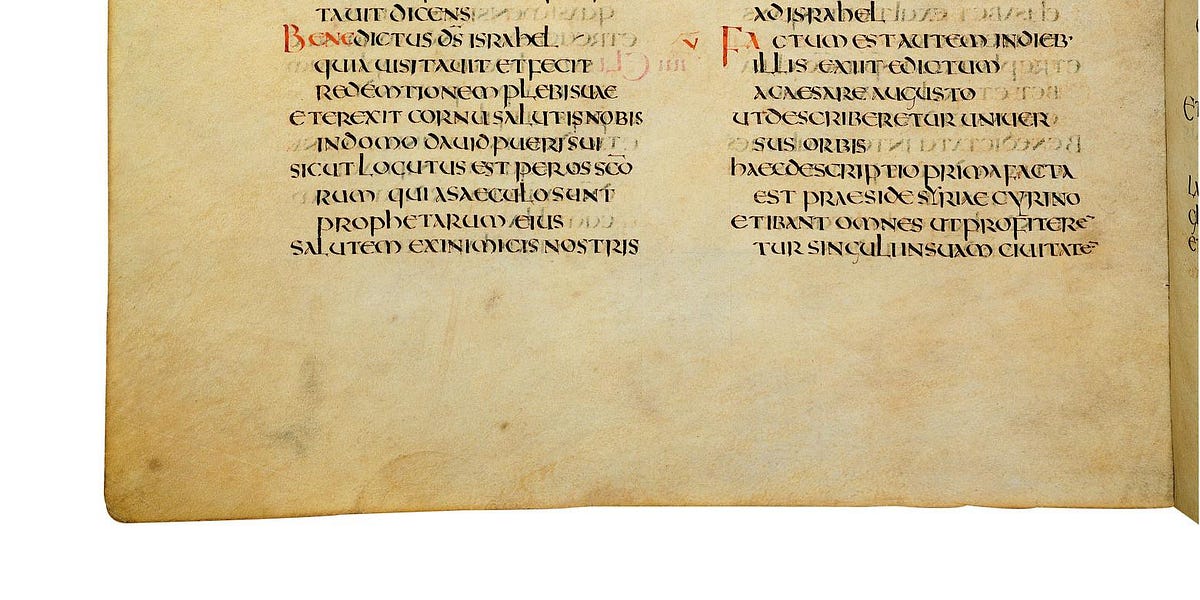 TAUIT DICENS
BENEDICTUS D̄S ISRAHEL
QUIA UISITAUIT ET FECIT
REDEMTIONEM PLEBIS UAE
ET EREXIT CORNU SALUTIS NOBIS
IN DOMO DAUID PUERI SUI
SICUT LOCUTUS EST PER OS SC̄O
RUM QUI A SAECULO SUNT
PROPHETARUM EIUS
SALUTEM EX INIMICIS NOSTRIS
AD ISRAHEL
V FACTUM EST AUTEM IN DIEB·
ILLIS EXIIT EDICTUM
A CAESARE AUGUSTO
UT DESCRIBERETUR UNIUER
SUS ORBIS
HAEC DESCRIPTIO PRIMA FACTA
EST PRAESIDE SYRIAE CYRINO
ET IBANT OMNES UT PROFITERE¯
TUR SINGULI IN SUAM CIUITATE¯